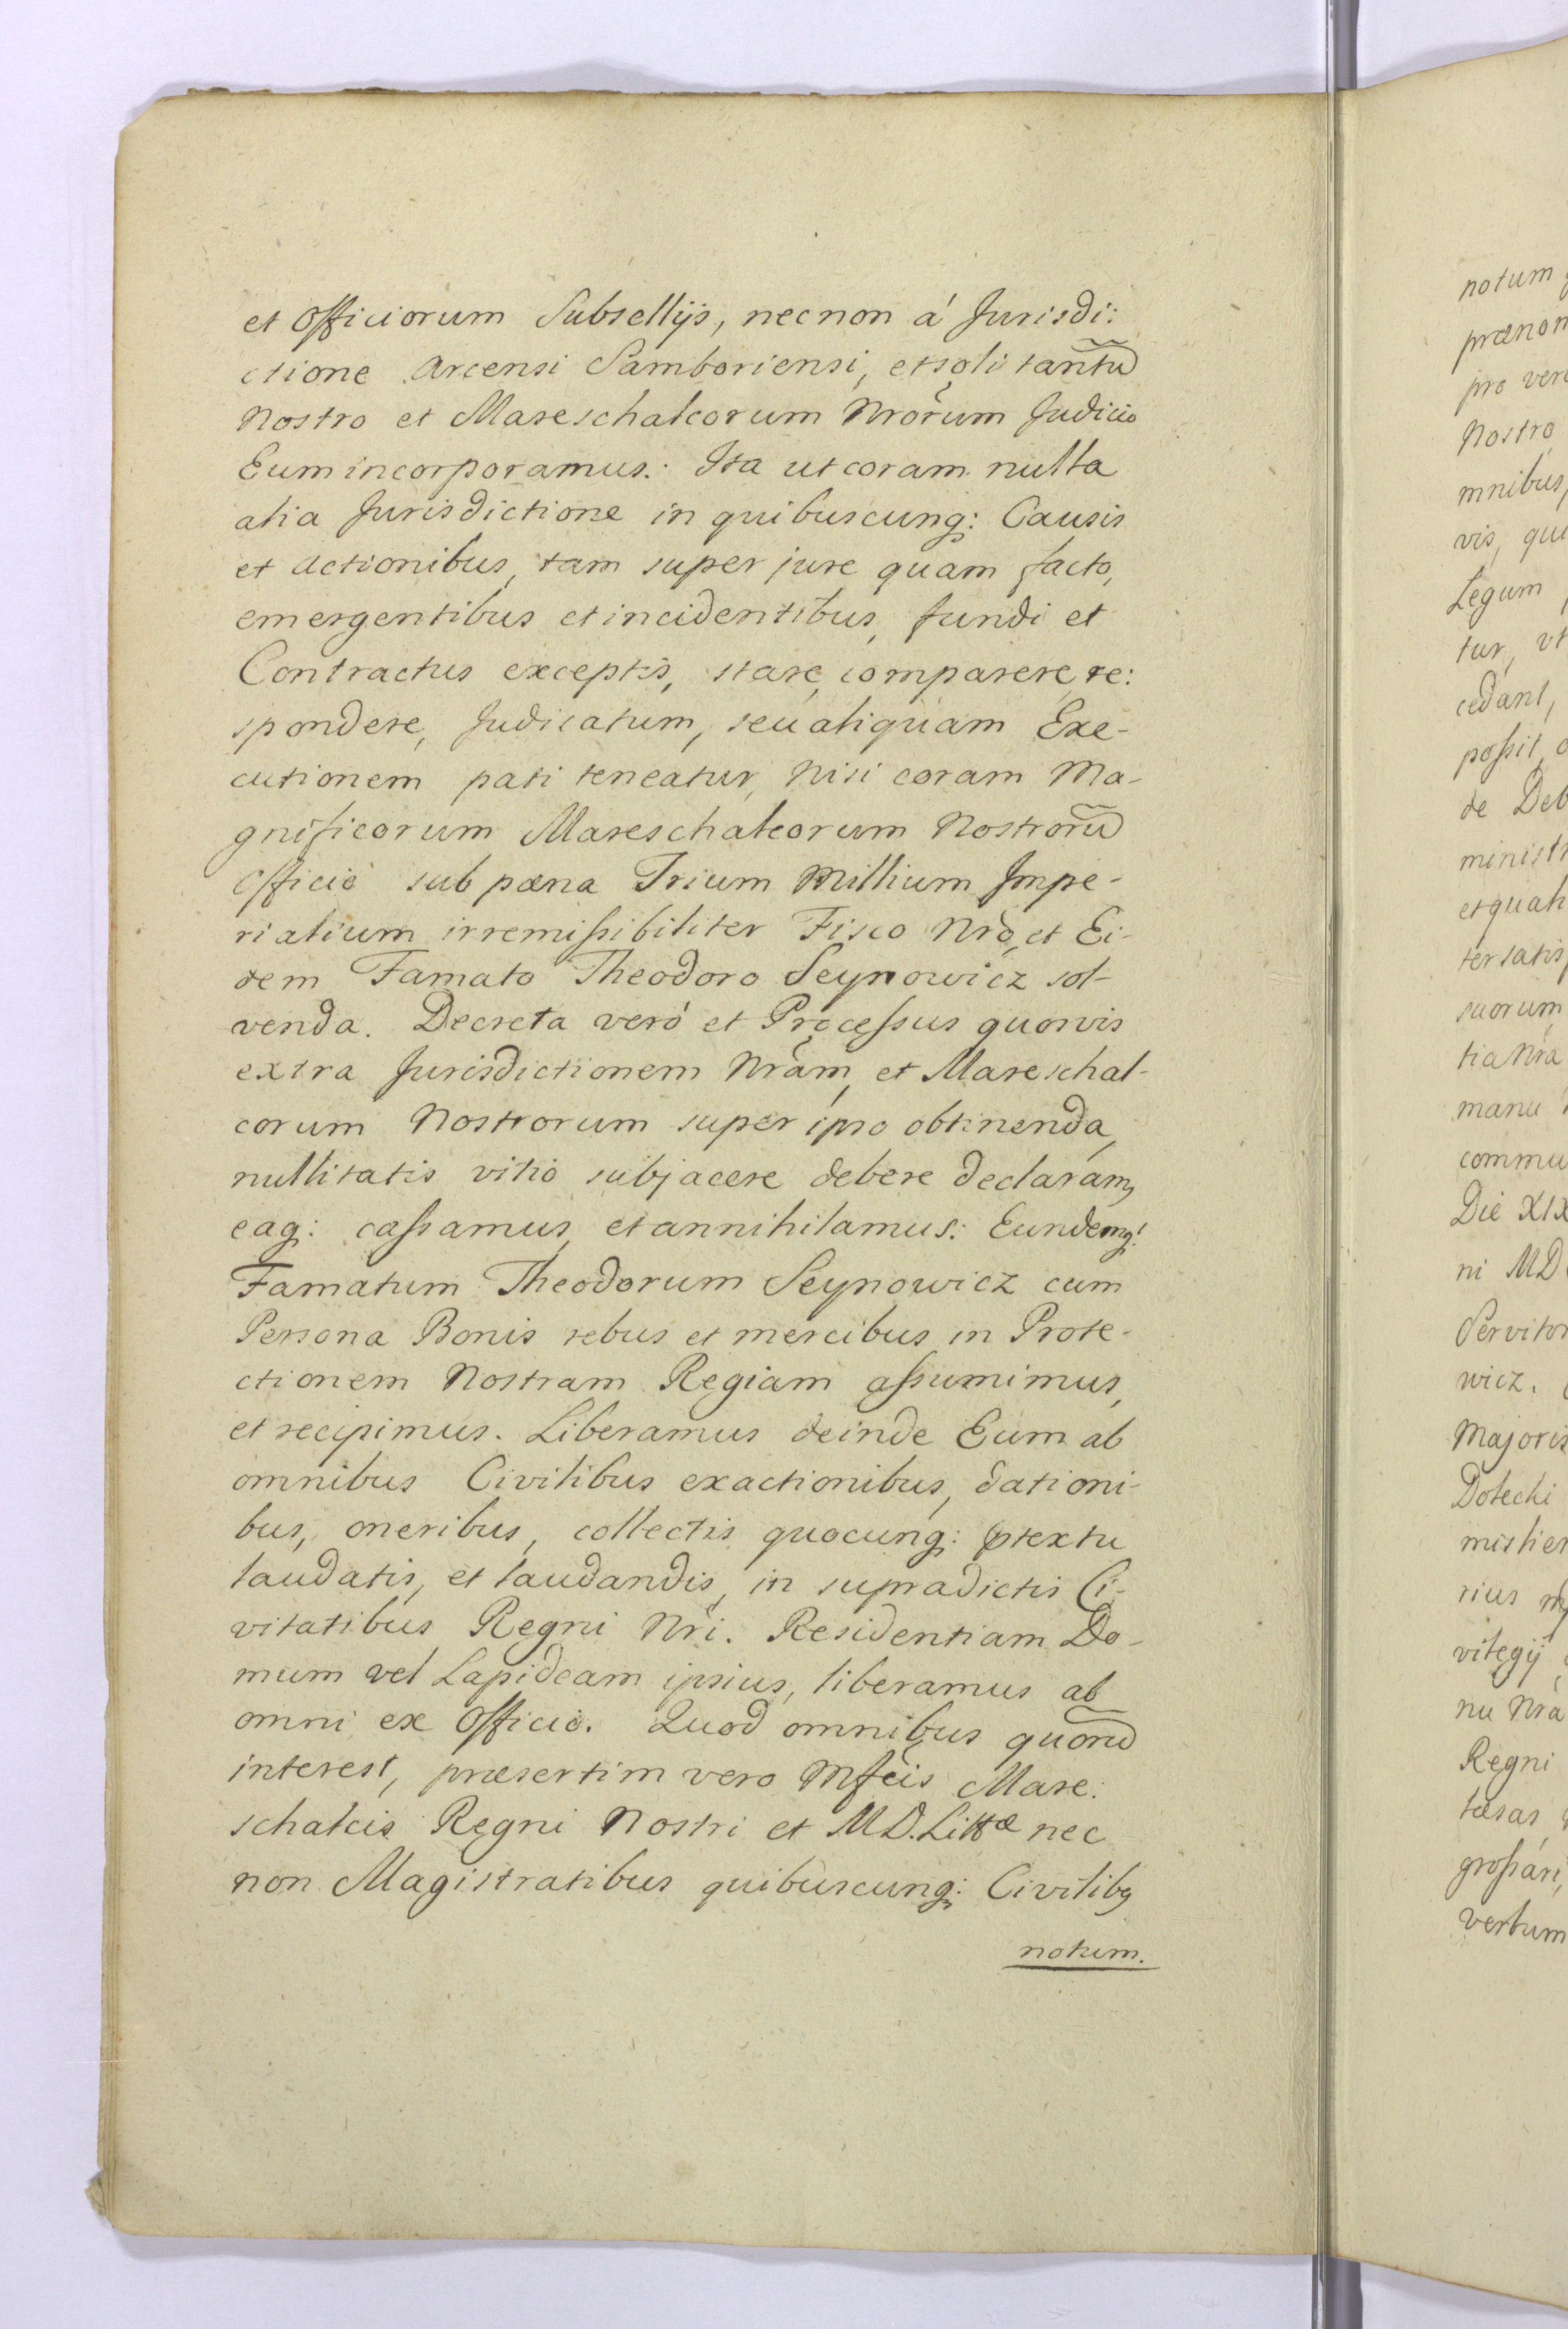 et Officiorum Subsellijs, necnon á Jurisdi:
ctione Arcensi Samboriensi, et soli tantũ
Nostro et Mareschalcorum Nrõrum Judicio
Eum incorporamus: Ita ut coram nulla
alia Jurisdictione in quibuscunq: Causis
et actionibus, tam super jure quam facto,
emergentibus et incidentibus, fundi et
Contractus exceptis, stare, comparere, re:
spondere, Judicatum, seu aliquam Exe-
cutionem pati teneatur, Nisi coram Ma-
gnificorum Mareschalcorum Nostrorũ
Officio sub pæna Trium Millium Impe-
rialium irremissibiliter Fisco Nrõ, et Ei-
dem Famato Theodoro Seynowicz sol-
venda. Decreta veró et Processus quosvis
extra Jurisdictionem Nrãm, et Mareschal-
corum Nostrorum super ipso obtinenda,
nullitatis vitio subjacere debere declaram9
eaq: cassamus, et annihilamus: Eundemq:
Famatum Theodorum Seynowicz cum
Persona Bonis rebus et mercibus in Prote-
ctionem Nostram Regiam assumimus,
et recipimus. Liberamus deinde Eum ab
omnibus Civilibus exactionibus, dationi-
bus, oneribus, collectis quocunq: ptextu
laudatis, et laudandis, in supradictis Ci-
vitatibus Regni Nri. Residentiam Do-
mum vel Lapideam ipsius, liberamus ab
omni ex Officio. Quod omnibus quorũ
interest, præsertim vero Mfcis Mare:
schalcis Regni Nostri et M.D. Littæ nec
non Magistratibus quibuscunq: Civilib9
notum.
notum
prænom
pro vero
Nostro
mnibus,
vis, qui
Legum
tur, vt
cedant,
possit
de Deb
ministr
et quali
ter satis
suorum
tia Nra
manu
commu
Die XIX
ni MD
Servitor
wicz.
Majoris
Dolechi
mislien
rius
vilegij
nu Nra
Regni
læsas,
grossari,
verbum